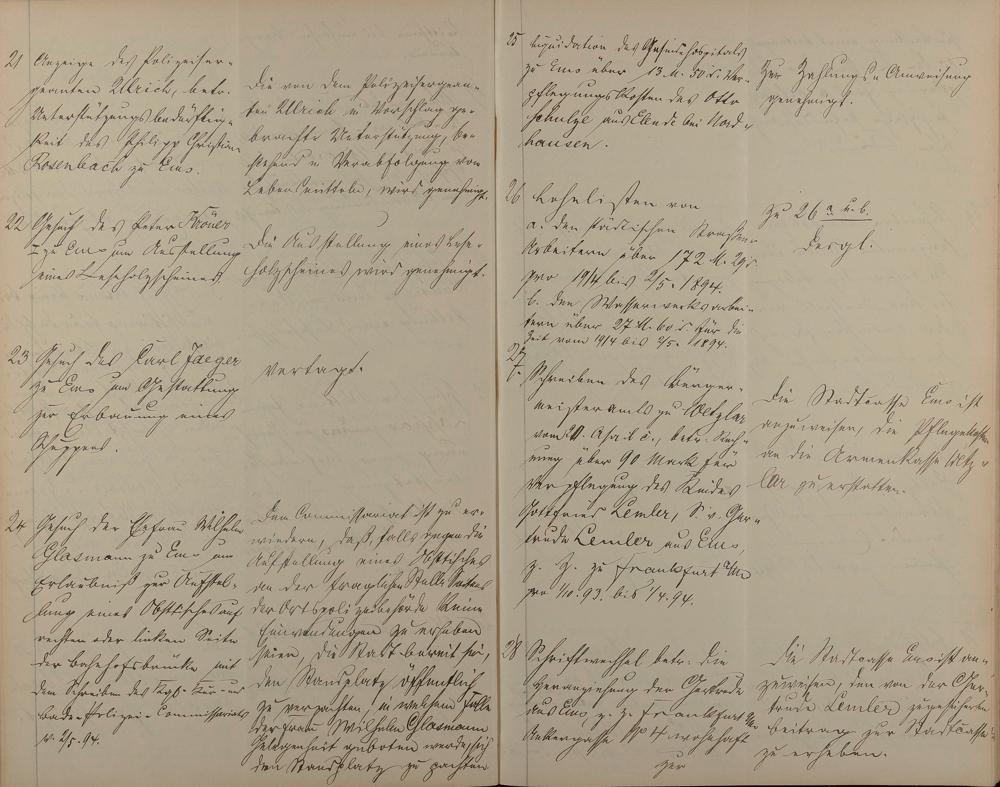 21 Anzeige des Polizeiser-
geanten Ullrich, betr.
Unterstützungsbedürftig-
keit des Philipp Christian
Rosenbach zu Ems.
Die von dem Polizeisergean-
ten Ullrich in Vorschlag ge-
brachte Unterstützung, be-
stehend in Verabfolgung von
Lebensmitteln, wird genehmigt.
22 Gesuch des Peter Kröner
I zu Ems um Ausstellung
eines Leseholzscheines.
Die Ausstellung eines Lese-
holzscheines wird genehmigt.
23 Gesuch des Carl Jaeger
zu Ems um Gestattung
zur Erbauung eines
Schuppens.
Vertagt.
24 Gesuch der Ehefrau Wilhelm
Glasmann zu Ems um
Erlaubniß zur Aufstel-
lung eines Obsttisches auf
rechten oder linken Seite
der Bahnhofsbrücke mit
dem Schreiben des Kgl. Kur- und
Bade-Polizei-Commissariats
v. 2/5. 94.
Dem Commissariat ist zu er-
wiedern, daß, falls gegen die
Aufstellung eines Obsttisches
an der fraglichen Stelle Seitens
der Ortspolizeibehörde keine
Einwendungen zu erheben
seien, die Stadt bereit sei,
den Standplatz öffentlich
zu verpachten, in welchem Falle
der Frau Wilhelm Glasmann
Gelegenheit geboten werde, sich
den Standplatz zu pachten
25 Liquidation des Gesindehospitals
zu Ems über 13 M. 50 d. Ver-
pflegungskosten des Otto
Schulze aus Elende bei Nord-
hausen.
Zur Zahlungs-Anweisung
genehmigt.
26 Lohnlisten von
a. den städtischen Straßen-
Arbeitern über 172 M. 29 d.
pro 19/4 bis 2/5. 1894.
b. den Wasserwerksarbei-
tern über 27 M. 60 d. für die
Zeit vom 19/4 bis 2/5. 1894.
Zu 26 a. u. b.
dergl.
27 Schreiben des Bürger-
meisteramts zu Wetzlar
vom April c., betr. Rech-
nung über 90 Mark für
Verpflegung des Kindes
Gottfried Lemler, S. v. Ger-
trude Lemler aus Ems,
z. Z. zu Frankfurt a/M
pro 1/10. 93. bis 1/4. 94.
Die Stadtcasse Ems ist
anzuweisen, die Pflegekosten
an die Armenkasse Wetz-
lar zu erstatten.
28 Schriftwechsel betr. die
Heranziehung der Gertrude
aus Ems z. Z. Frankfurt a/M
Ankergasse No 4 wohnhaft
zur
Die Stadtcasse Ems ist an-
zuweisen, den von der Ger-
trude Lemler zugesicherten
Beitrag zur Stadtcasse
zu erheben.